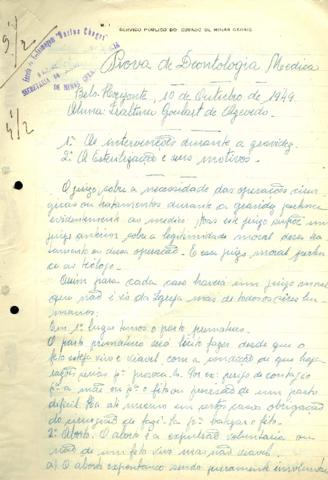 SERVIÇO PÚBLICO DO ESTADO DE MINAS GERAIS
5/2
4/2
"Carlos Chagas"
SECRETARIA
DE MINAS
Prova de Deontologia Medica
Belo Horizonte, 10 de Outubro de 1949
Aluna: Goulart de Azevedo.
1ª As intervenções durante a gravidez
2ª A Esterilização e seus motivos.
O juizo sobre a necessidade das operações cirur-
gicas ou tratamentos durante a gravidez pertence
evidentemente ao medico. Mas este juizo supõe um
juizo anterior sobre a legitimidade moral desse tra-
tamento ou dessa operação. E esse juizo moral perten-
ce ao teólogo.
Assim para cada caso haverá um juizo moral
que não é só da Igreja mas de todos os seres hu-
manos.
Em 1º lugar temos o parto prematuro.
O parto prematuro será licito fazer desde que o
feto esteja vivo e viavel, com a condição de que haja
razões serias pª provoca-lo. Por ex: perigo de contagio
pª a mãe ou pª o feto ou previsão de um parto
dificil. Há até mesmo em certos casos obrigação
do cirurgião de fazê-lo pª batizar o feto.
2º Aborto. O aborto é a expulsão voluntaria ou
não de um feto vivo mas não viavel.
a) O aborto espontaneo sendo puramente involuntá-